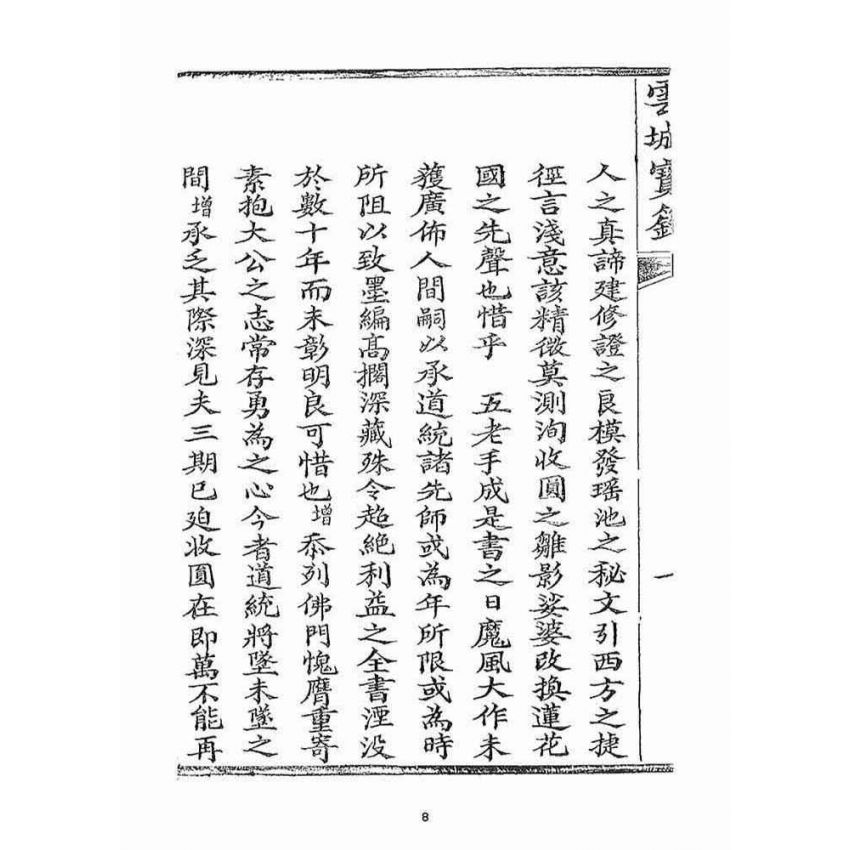 雲城寶籙
一
人之真諦建修證之良模發瑶池之秘文引西方之捷
徑言淺意該精微莫測洵收圓之雛影娑婆改換蓮花
國之先聲也惜乎　五老手成是書之日魔風大作未
獲廣佈人間嗣以承道統諸先師或為年所限或為時
所阻以致墨編高擱深藏殊令超絶利益之全書湮没
於數十年而未彰明良可惜也增忝列佛門愧膺重寄
素抱大公之志常存勇為之心今者道統將墜未墜之
間增承乏其際深見夫三期已廹收圓在即萬不能再
8